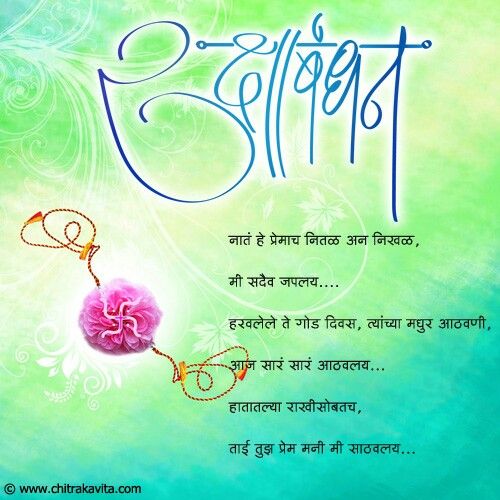 रक्षाबंधन
नातं हे प्रेमाच नितळ अन निखळ,
मी सदैव जपलय....
हरवलेले ते गोड दिवस, त्यांच्या मधुर आठवणी,
आज सारं सारं आठवलय...
हातातल्या राखीसोबतच,
ताई तुझ प्रेम मनी मी साठवलय...
© www.chitrakavita.com